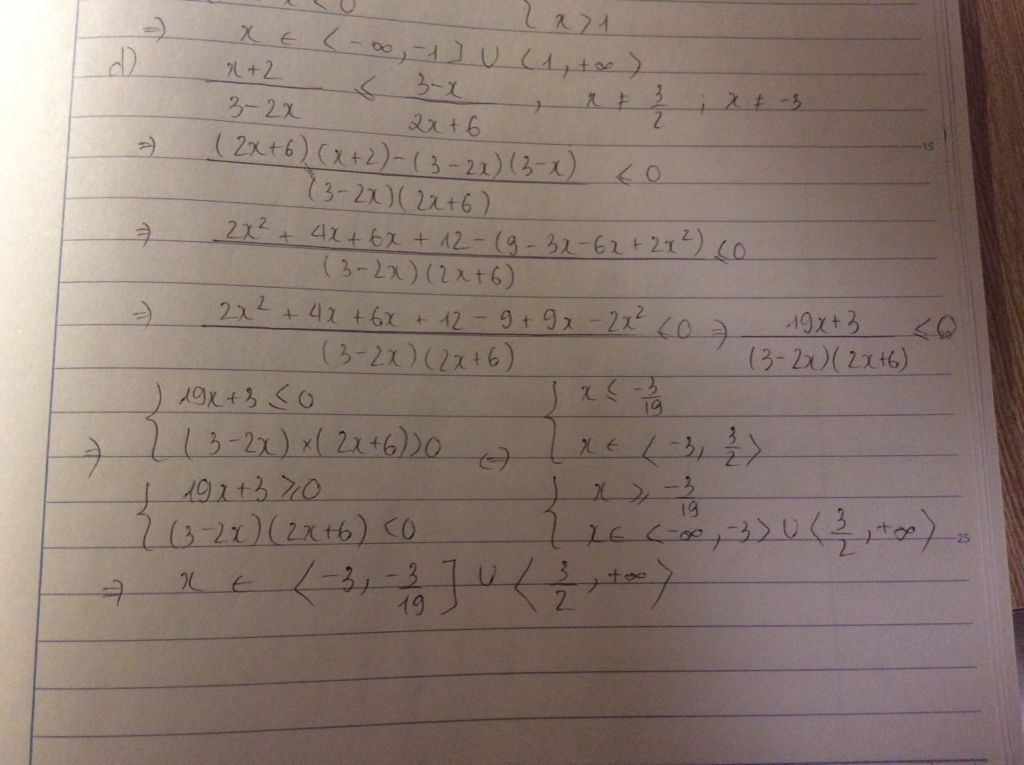 x < 0 { x > 1
⇒ x ∈ ⟨-∞, -1] ∪ ⟨1, +∞⟩
d) (x+2)/(3-2x) ≤ (3-x)/(2x+6) , x ≠ 3/2 ; x ≠ -3
⇒ ((2x+6)(x+2)-(3-2x)(3-x))/((3-2x)(2x+6)) ≤ 0
15
⇒ (2x² + 4x + 6x + 12 - (9 - 3x - 6x + 2x²))/((3-2x)(2x+6)) ≤ 0
⇒ (2x² + 4x + 6x + 12 - 9 + 9x - 2x²)/((3-2x)(2x+6)) ≤ 0 ⇒ (19x+3)/((3-2x)(2x+6)) ≤ 0
20
{ 19x+3 ≤ 0 { x ≤ -3/19
⇒ (3-2x)×(2x+6)>0 ⇔ x ∈ ⟨-3, 3/2⟩
{ 19x+3 ≥ 0 { x ≥ -3/19
(3-2x)(2x+6) < 0 x ∈ ⟨-∞, -3⟩ ∪ ⟨3/2, +∞⟩
25
⇒ x ∈ ⟨-3, -3/19] ∪ ⟨3/2, +∞⟩